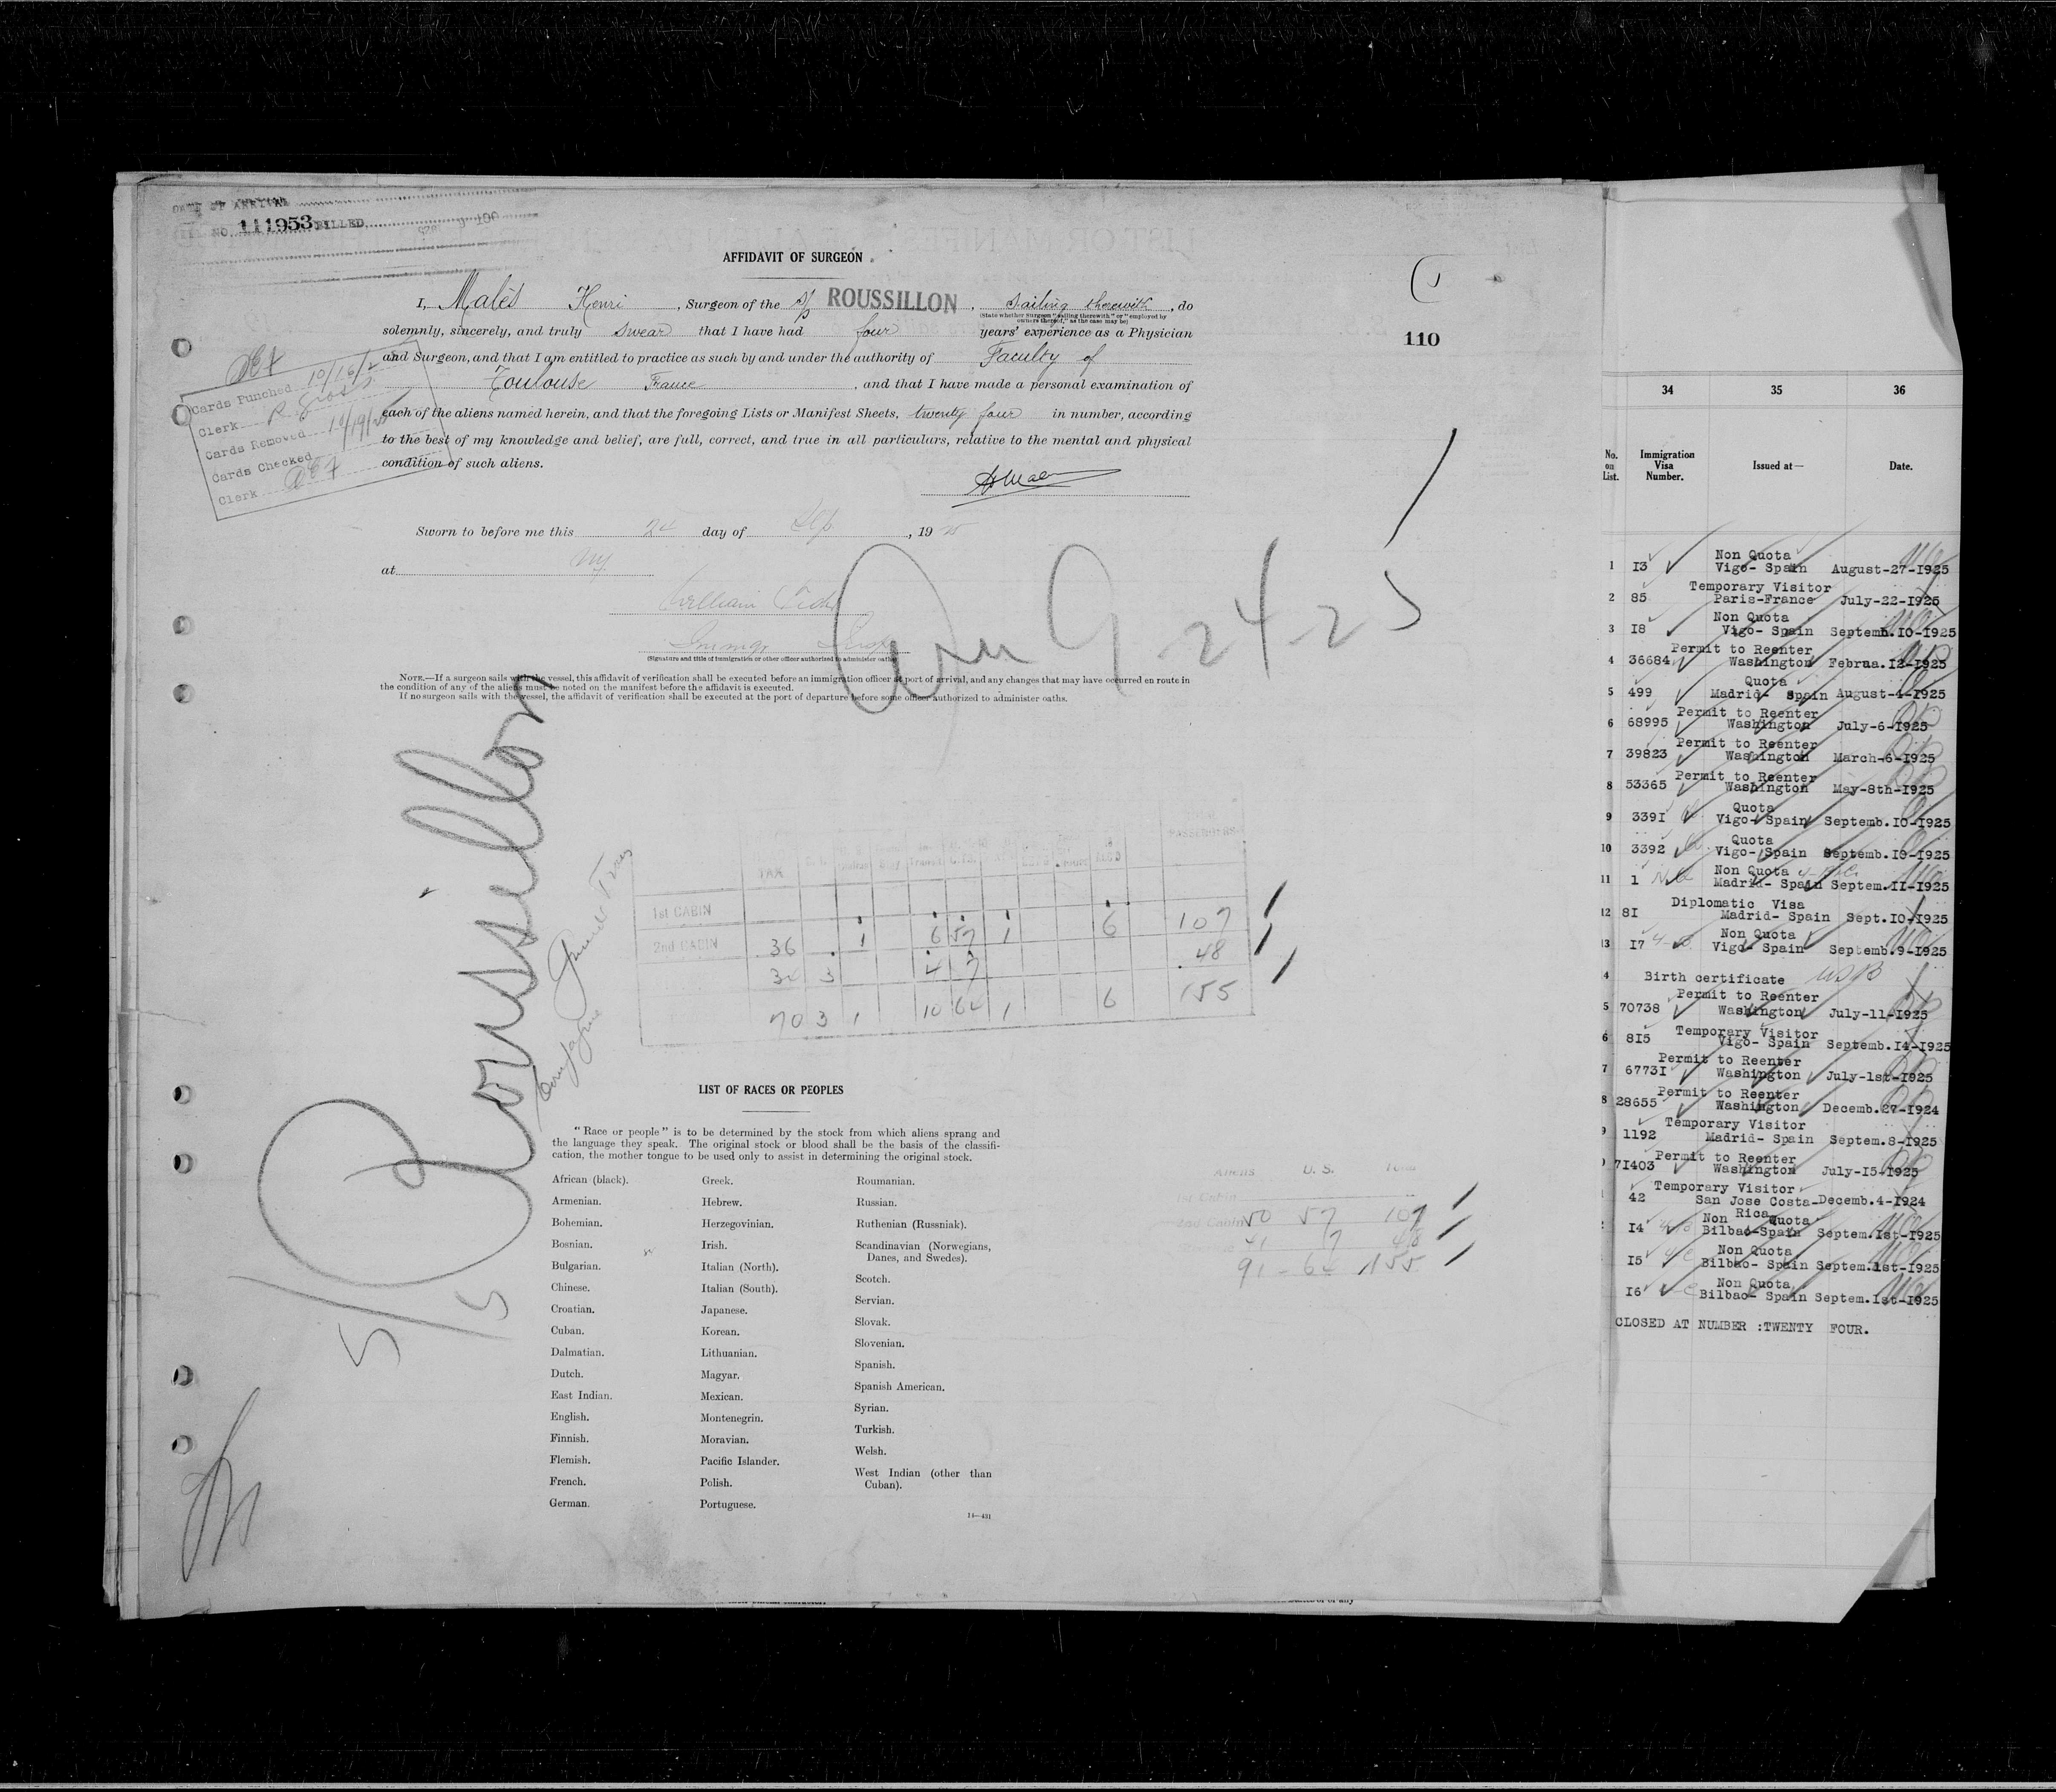 DATE OF ARRIVAL
NO. 111953 BILLED
AFFIDAVIT OF SURGEON
I, Malès Henri, Surgeon of the S/s ROUSSILLON, Sailing therewith, do
(State whether Surgeon "sailing therewith" or "employed by
owners thereof," as the case may be)
solemnly, sincerely, and truly swear that I have had four years' experience as a Physician
and Surgeon, and that I am entitled to practice as such by and under the authority of Faculty of
Toulouse France, and that I have made a personal examination of
each of the aliens named herein, and that the foregoing Lists or Manifest Sheets, twenty four in number, according
to the best of my knowledge and belief, are full, correct, and true in all particulars, relative to the mental and physical
condition of such aliens.
110
Cards Punched 10/16/2
Clerk
Cards Removed
Cards Checked
Clerk
Sworn to before me this 24 day of Sep, 19 25
at NY
William
(Signature and title of immigration or other officer authorized to administer oaths)
Arr 9-24-25
NOTE.—If a surgeon sails with the vessel, this affidavit of verification shall be executed before an immigration officer at port of arrival, and any changes that may have occurred en route in
the condition of any of the aliens must be noted on the manifest before the affidavit is executed.
If no surgeon sails with the vessel, the affidavit of verification shall be executed at the port of departure before some officer authorized to administer oaths.
Roussillon
TAX
PASSENGERS
1st CABIN
2nd CABIN 36 1 6 57 1 6 107
34 3 4 7 48
70 3 1 10 64 1 6 155
LIST OF RACES OR PEOPLES
"Race or people" is to be determined by the stock from which aliens sprang and
the language they speak. The original stock or blood shall be the basis of the classifi-
cation, the mother tongue to be used only to assist in determining the original stock.
African (black).
Armenian.
Bohemian.
Bosnian.
Bulgarian.
Chinese.
Croatian.
Cuban.
Dalmatian.
Dutch.
East Indian.
English.
Finnish.
Flemish.
French.
German.
Greek.
Hebrew.
Herzegovinian.
Irish.
Italian (North).
Italian (South).
Japanese.
Korean.
Lithuanian.
Magyar.
Mexican.
Montenegrin.
Moravian.
Pacific Islander.
Polish.
Portuguese.
Roumanian.
Russian.
Ruthenian (Russniak).
Scandinavian (Norwegians,
Danes, and Swedes).
Scotch.
Servian.
Slovak.
Slovenian.
Spanish.
Spanish American.
Syrian.
Turkish.
Welsh.
West Indian (other than
Cuban).
14—431
Aliens U. S. Total
1st Cabin
2nd Cabin 50 57 107
41 7 48
91 - 64 155
34 35 36
No. on List. Immigration Visa Number. Issued at— Date.
Non Quota
1 13 Vigo- Spain August-27-1925
Temporary Visitor
2 85 Paris-France July-22-1925
Non Quota
3 18 Vigo- Spain Septemb.10-1925
Permit to Reenter
4 36684 Washington Februa.12-1925
Quota
5 499 Madrid- Spain August-4-1925
Permit to Reenter
6 68995 Washington July-6-1925
Permit to Reenter
7 39823 Washington March-6-1925
Permit to Reenter
8 53365 Washington May-8th-1925
Quota
9 3391 Vigo- Spain Septemb.10-1925
Quota
10 3392 Vigo- Spain Septemb.10-1925
Non Quota
11 1 Madrid- Spain Septem.11-1925
Diplomatic Visa
12 81 Madrid- Spain Sept.10-1925
Non Quota
13 17 Vigo- Spain Septemb.9-1925
4 Birth certificate USB
Permit to Reenter
5 70738 Washington July-11-1925
Temporary Visitor
6 815 Vigo- Spain Septemb.14-1925
Permit to Reenter
7 67731 Washington July-1st-1925
Permit to Reenter
8 28655 Washington Decemb.27-1924
Temporary Visitor
9 1192 Madrid- Spain Septem.8-1925
Permit to Reenter
71403 Washington July-15-1925
Temporary Visitor
42 San Jose Costa- Decemb.4-1924
Rica
Non Quota
14 Bilbao-Spain Septem.1st-1925
Non Quota
15 Bilbao- Spain Septem.1st-1925
Non Quota
16 Bilbao- Spain Septem.1st-1925
CLOSED AT NUMBER :TWENTY FOUR.